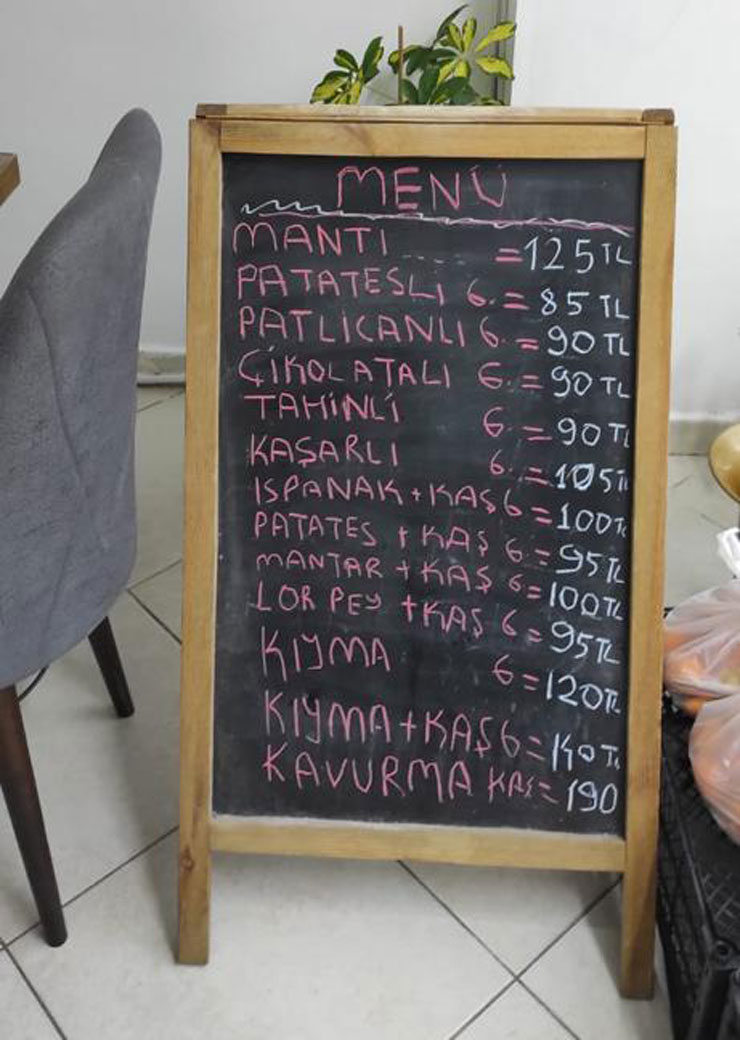 MENÜ
MANTI .... =125TL
PATATESLİ G.=85TL
PATLICANLI G.=90TL
ÇİKOLATALI G.=90TL
TAHİNLİ G.=90TL
KAŞARLI G.=105TL
ISPANAK+KAŞ G=100TL
PATATES+KAŞ G=95TL
MANTAR+KAŞ G=100TL
LOR PEY+KAŞ G=95TL
KIYMA G=120TL
KIYMA+KAŞ G= TL
KAVURMA KAŞ=190